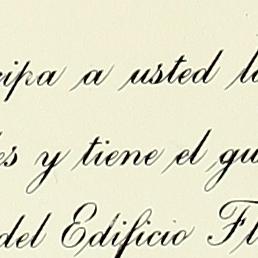 cipa a usted la
es y tiene el gu
del Edificio Fl